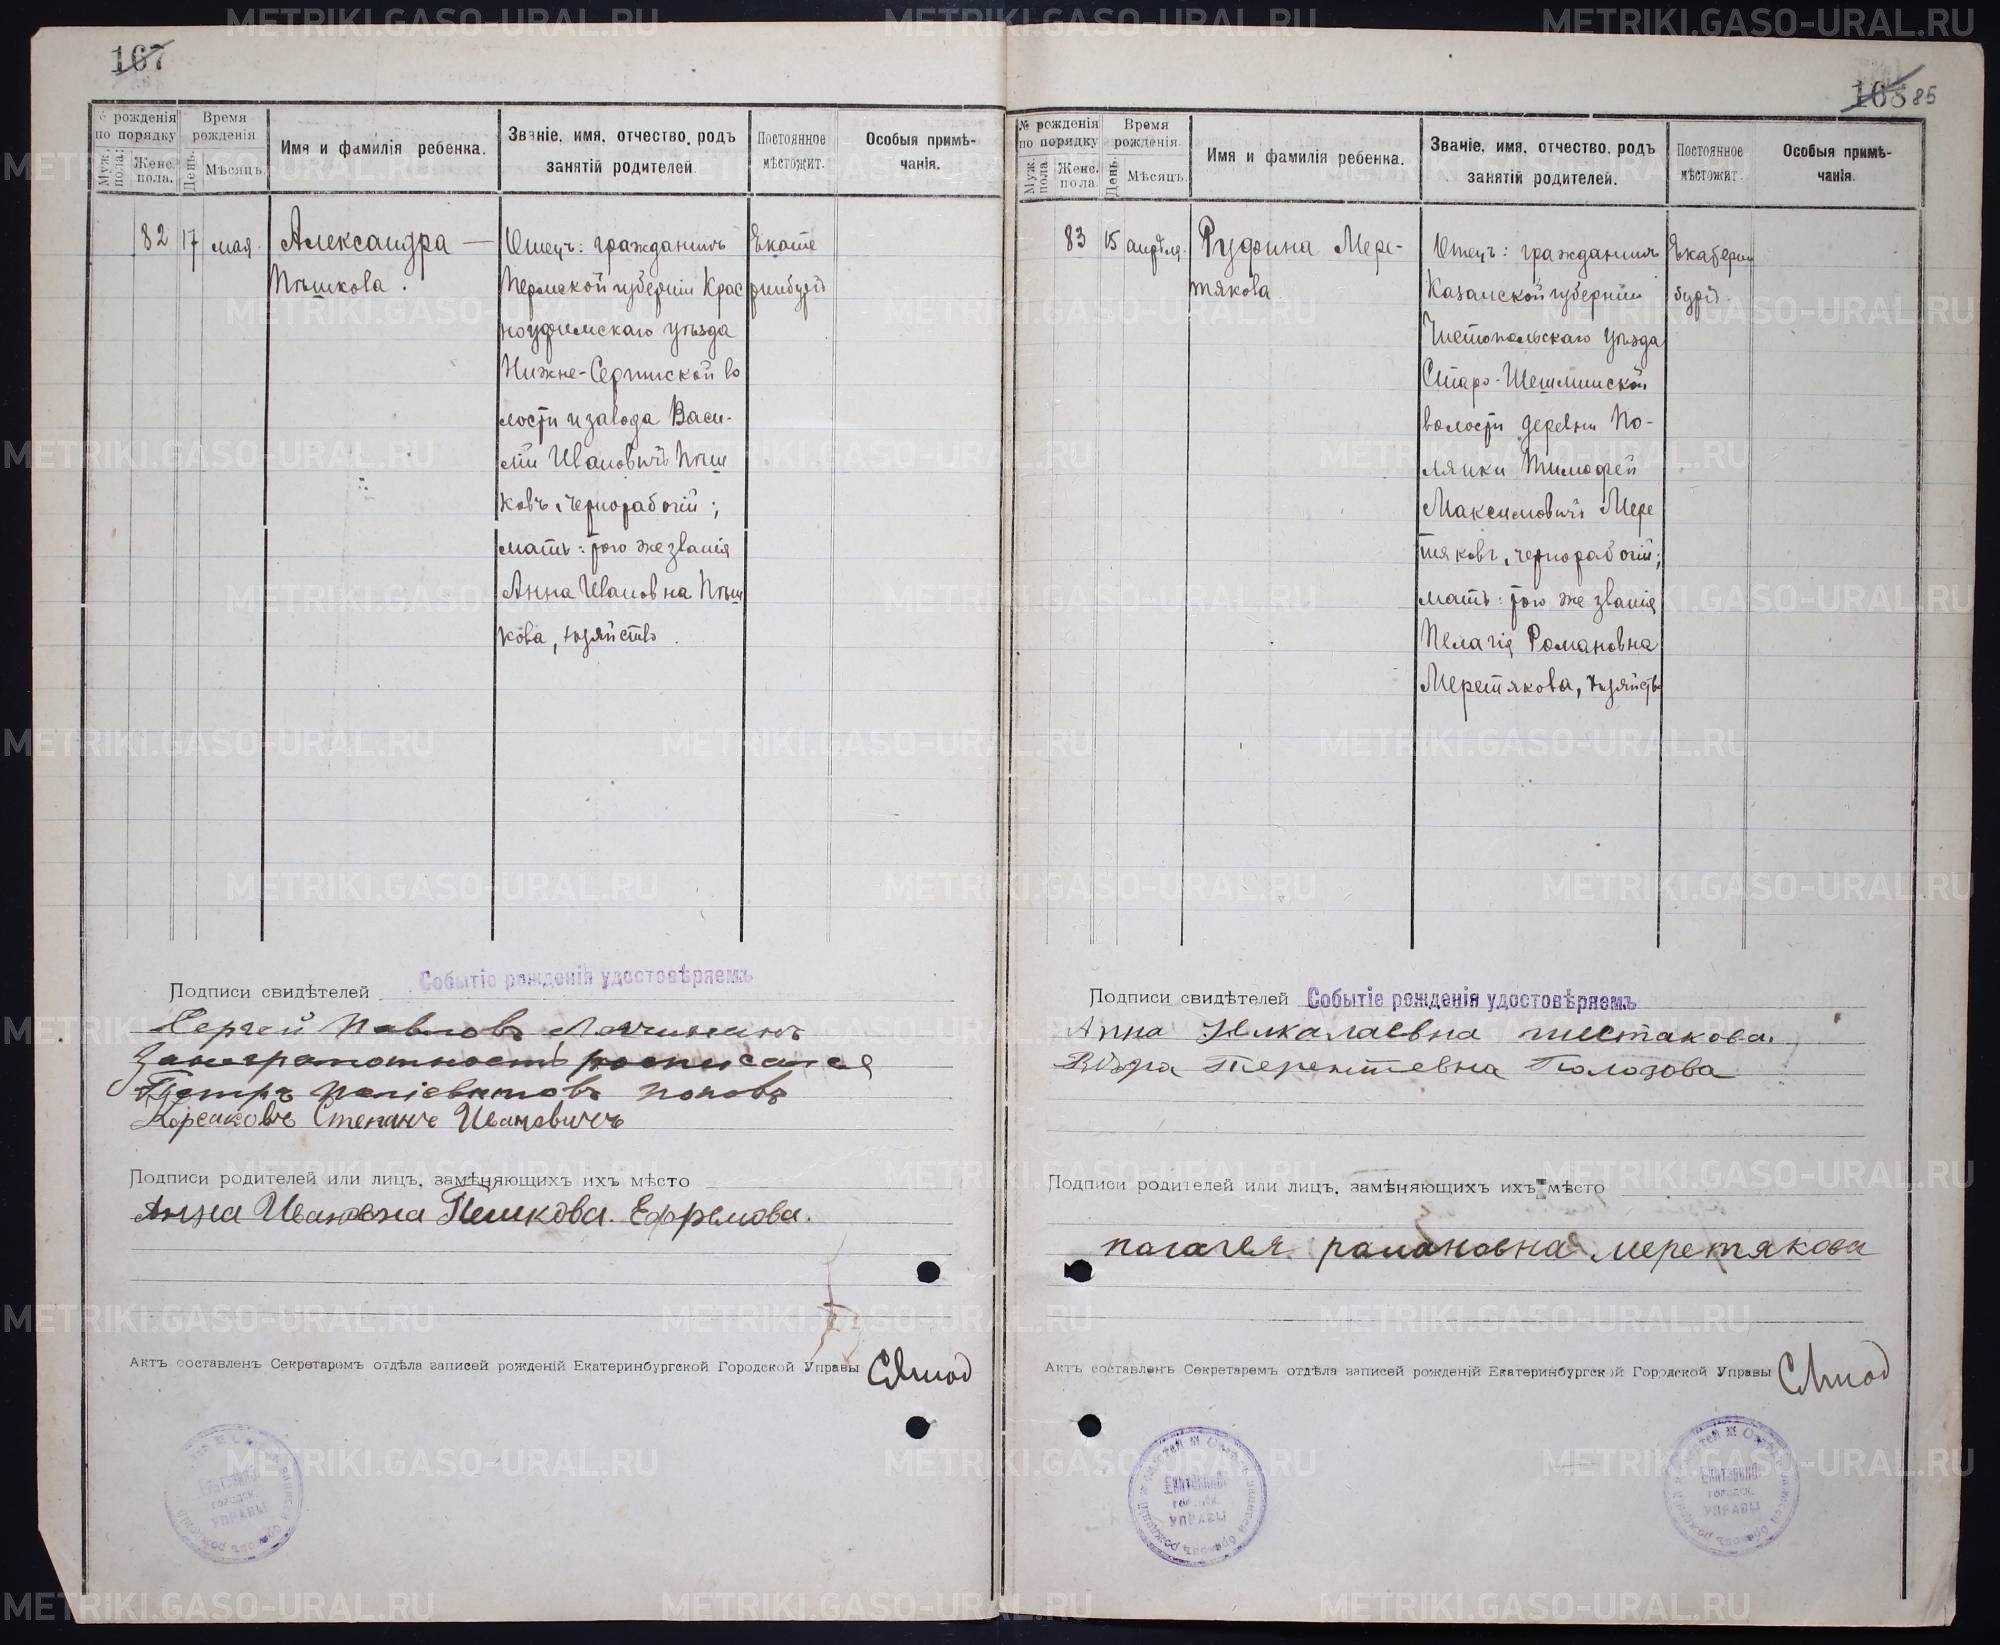 167
№ рожденія по порядку
Муж. пола.
Женс. пола.
Время рожденія
День.
Мѣсяцъ.
Имя и фамилія ребенка.
Званіе, имя, отчество, родъ занятій родителей.
Постоянное мѣстожит.
Особыя примѣчанія.
82
17
мая.
Александра —
Пѣшкова.
Отецъ: гражданинъ
Пермской губерніи Крас
ноуфимскаго уѣзда
Нижне-Сергинской во
лости и завода Васи-
лій Ивановичъ Пѣш
ковъ, чернорабочій;
мать: того же званія
Анна Ивановна Пѣш
кова, хозяйство.
Екате
ринбургъ
Подписи свидѣтелей
Событіе рожденія удостовѣряемъ
Сергей Павловъ
За неграмотность росписался
Петръ Поповъ
Корсаковъ Степанъ Ивановичъ
Подписи родителей или лицъ, замѣняющихъ ихъ мѣсто
Анна Ивановна Пешкова. Ефремова.
Актъ составленъ Секретаремъ отдѣла записей рожденій Екатеринбургской Городской Управы
168 85
№ рожденія по порядку
Муж. пола.
Женс. пола
Время рожденія.
День.
Мѣсяцъ.
Имя и фамилія ребенка.
Званіе, имя, отчество, родъ занятій родителей.
Постоянное мѣстожит.
Особыя примѣчанія.
83
15
апрѣля.
Руфина Мере-
тякова
Отецъ: гражданинъ
Казанской губерніи
Чистопольскаго уѣзда
Старо-Шешминской
волости деревни По-
лянки Тимофей
Максимовичъ Мере
тяковъ, чернорабочій;
мать: того же званія
Пелагія Романовна
Меретякова, хозяйство
Екатерин
бургъ.
Подписи свидѣтелей
Событіе рожденія удостовѣряемъ
Анна Николаевна шестакова.
Вѣра Терентевна Полозова
Подписи родителей или лицъ, замѣняющихъ ихъ мѣсто
палагея рамановна меретякова
Актъ составленъ Секретаремъ отдѣла записей рожденій Екатеринбургской Городской Управы
METRIKI.GASO-URAL.RU